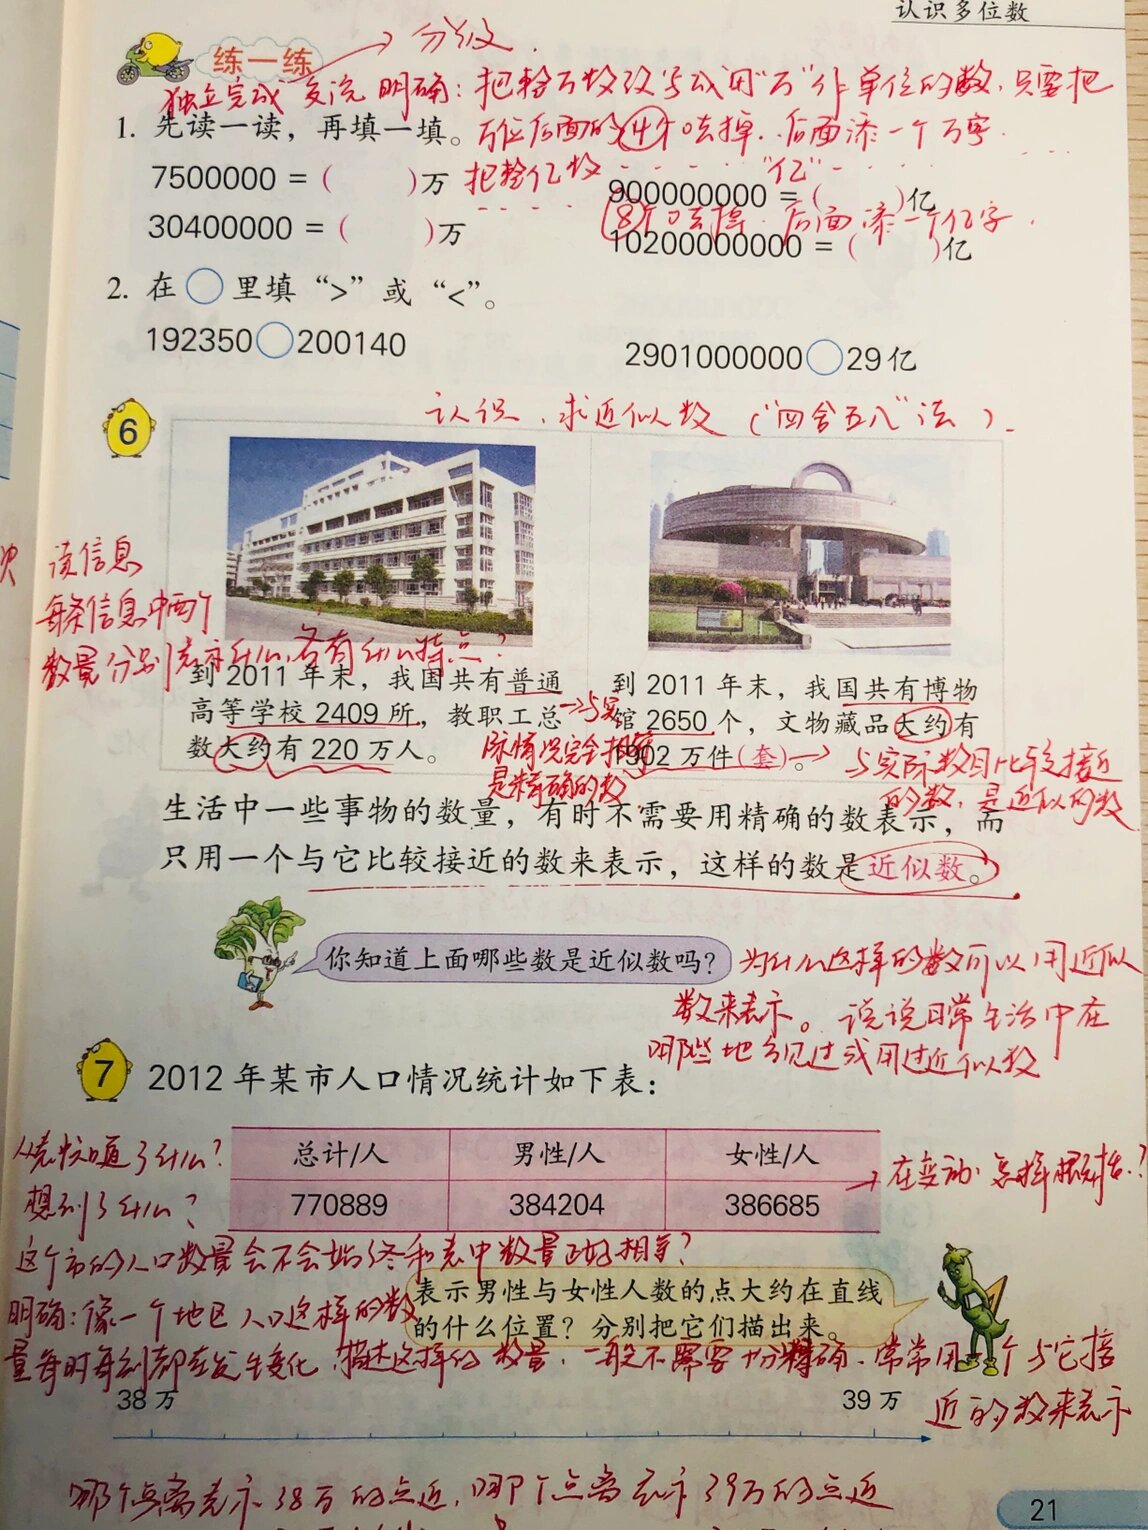 认识多位数
练一练 → 分级.
独立完成 交流 明确：把整万数改写成用“万”作单位的数，只要把
1. 先读一读，再填一填。万位后面的4个0去掉，后面添一个万字.
7500000 = (    )万 把整亿数 - - - - “亿” - - - -
900000000 = (    )亿
30400000 = (    )万 - - - - 8个0去掉，后面添一个亿字.
10200000000 = (    )亿
2. 在○里填“>”或“<”。
192350○200140
2901000000○29亿
认识、求近似数（“四舍五入”法）
6
读信息
每条信息中两个
数量分别表示什么，各有什么特点？
到 2011 年末，我国共有普通
高等学校 2409 所，教职工总
数大约有 220 万人。
→与实
际情况完全相等
是精确的数
到 2011 年末，我国共有博物
馆 2650 个，文物藏品大约有
1902 万件(套)。
→与实际数目比较接近
的数，是近似的数
生活中一些事物的数量，有时不需要用精确的数表示，而
只用一个与它比较接近的数来表示，这样的数是近似数。
你知道上面哪些数是近似数吗？
为什么这样的数可以用近似
数来表示。说说日常生活中在
哪些地方见过或用过近似数
7 2012 年某市人口情况统计如下表：
从表中知道了什么？
想到了什么？
总计/人 男性/人 女性/人
770889 384204 386685
→在变动.怎样概括？
这个市的人口数量会不会始终和表中数量正好相等？
表示男性与女性人数的点大约在直线
的什么位置？分别把它们描出来。
明确：像一个地区人口这样的数
量每时每刻都在发生变化，描述这样的数量，一般不需要十分精确，常常用一个与它接
近的数来表示
38 万 39 万
哪个点离表示38万的点近，哪个点离表示39万的点近
21